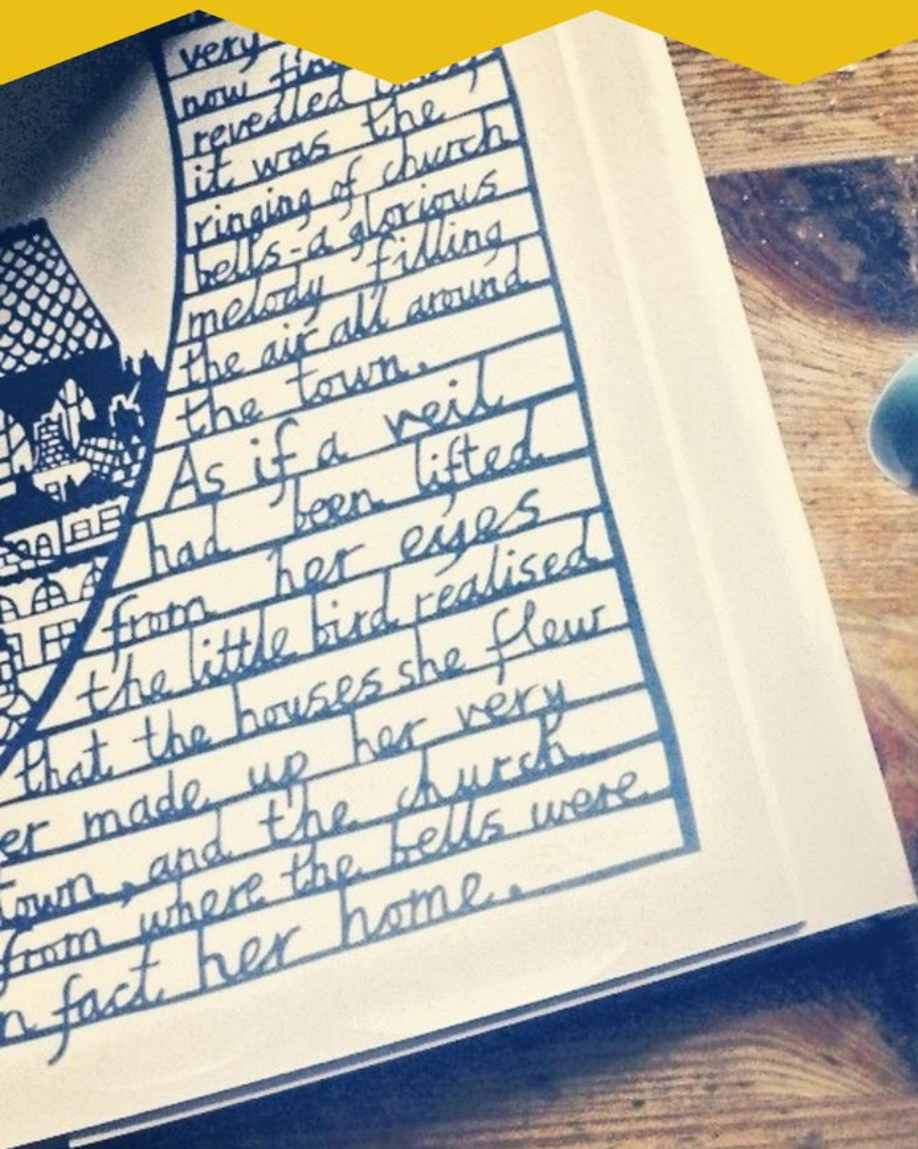 very
now
revealed
it was the
ringing of church
bells-a glorious
melody filling
the air all around
the town.
As if a veil
had been lifted
from her eyes
the little bird realised
that the houses she flew
er made up her very
town, and the church
from where the bells were
n fact her home.